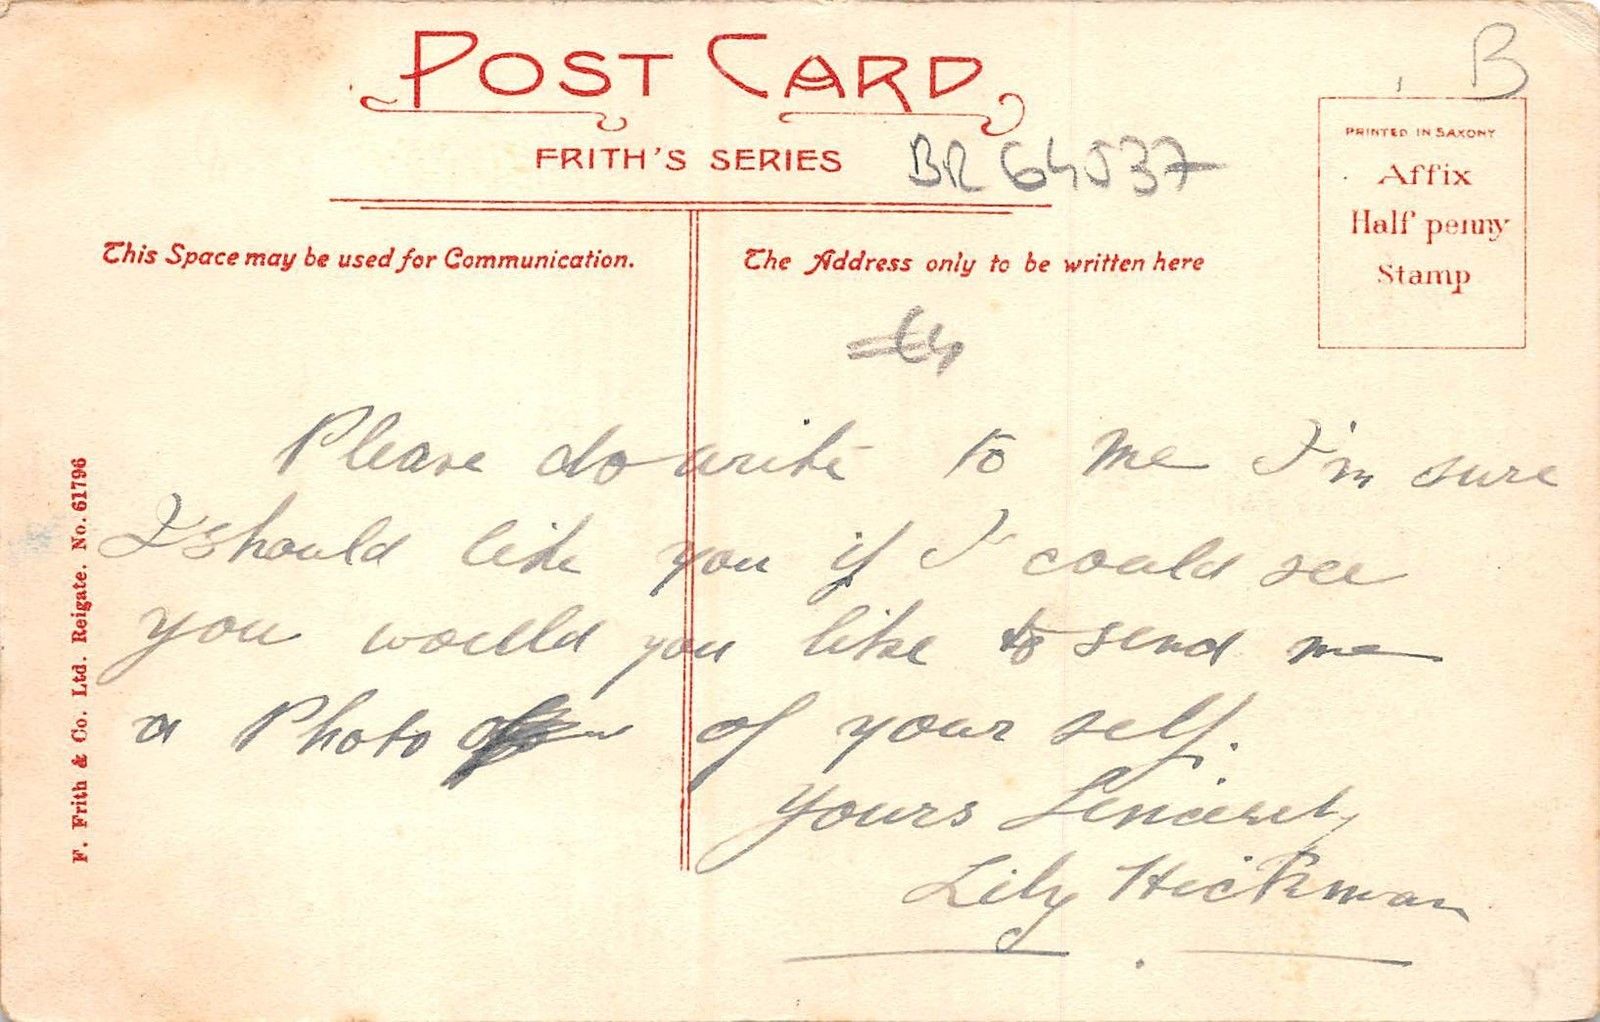 POST CARD
FRITH'S SERIES
BR 64537
B
PRINTED IN SAXONY
Affix
Half penny
Stamp
This Space may be used for Communication.
The Address only to be written here
Please do write to me I'm sure
I should like you if I could see
you would you like to send me
a Photo of your self.
Yours Sincerely
Lily Hickman
F. Frith & Co. Ltd. Reigate. No. 61796